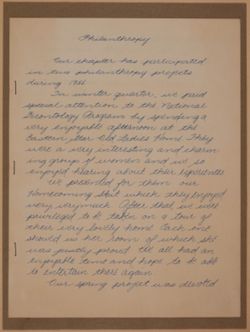 Philanthropy
Our chapter has participated
in two philanthropy projects
during 1955.
In winter quarter, we paid
special attention to the National
Gerontology Program by spending a
very enjoyable afternoon at the
Eastern Star Old Ladies Home. They
were a very interesting and charm
ing group of women and we so
enjoyed hearing about their experiences
We presented for them our
Homecoming skit which they enjoyed
very very much. After that we were
privileged to be taken on a tour of
their very lovely home. Each one
showed us her room of which she
was justly proud. We all had an
enjoyable time and hope to be able
to entertain there again.
Our spring project was devoted